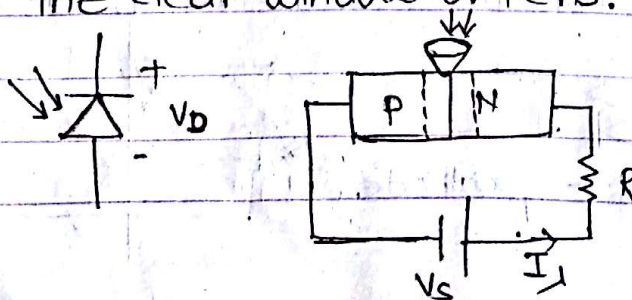 The clear window or lens.
+
V_D
-
P N
R
V_S I_λ